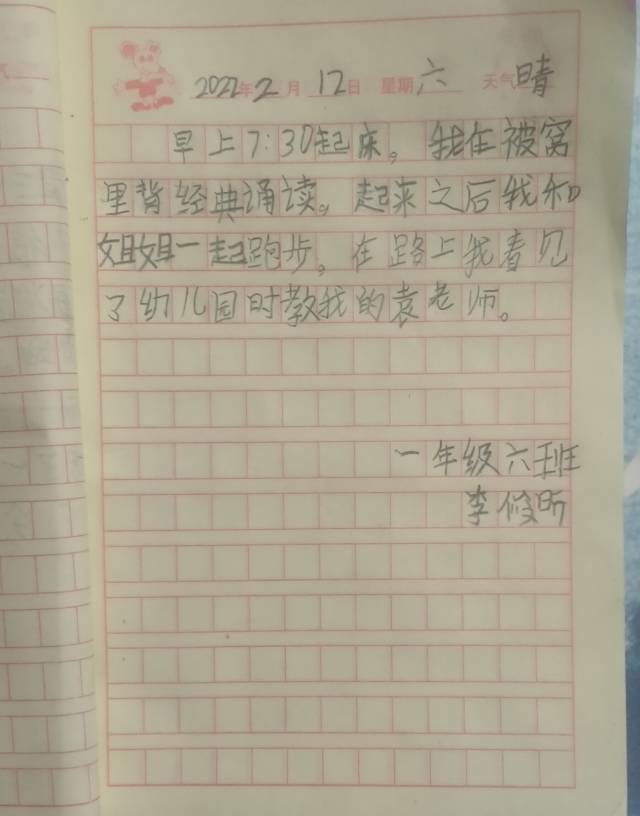 2022年2月12日 星期六 天气晴
早上7:30起床。我在被窝
里背经典诵读。起来之后我和
姐姐一起跑步。在路上我看见
了幼儿园时教我的袁老师。
一年级六班
李俊昕
气